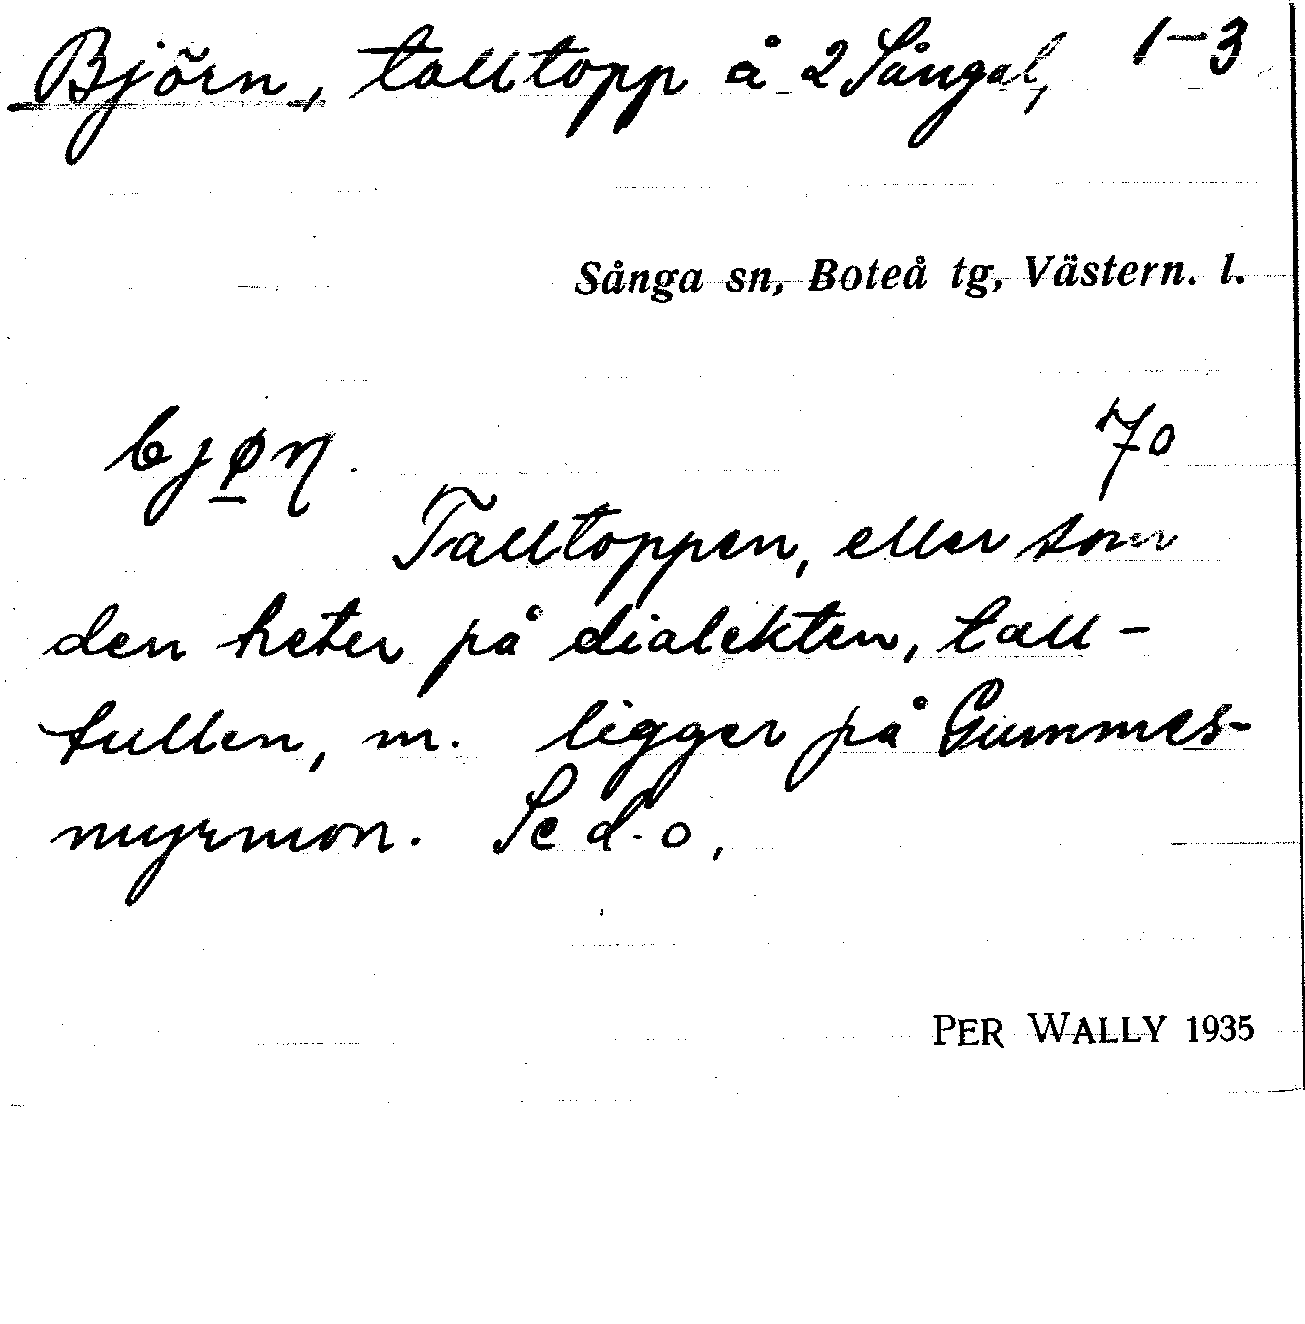 Björn, talltopp å 2 Sångal, 1-3
Sånga sn, Boteå tg, Västern. l.
bjøɳ. 70
Talltoppen, eller som
den heter på dialekten, tall-
tullen, m. ligger på Gummes-
myrmon. Se d. o,
PER WALLY 1935